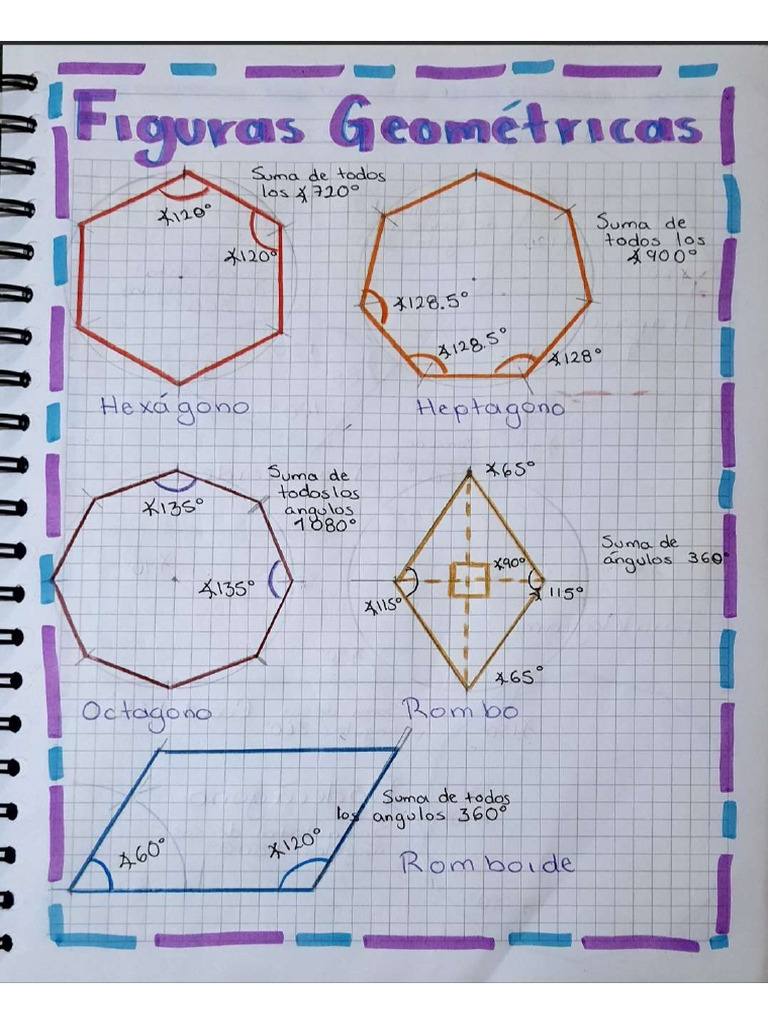 Figuras Geométricas
Suma de todos
los ∡720°
∡120°
∡120°
Hexágono
Suma de
todos los
∡900°
∡128.5°
∡128.5°
∡128°
Heptagono
Suma de
todos los
angulos
1080°
∡135°
∡135°
Octagono
∡65°
∡90°
∡115°
∡115°
∡65°
Suma de
ángulos 360°
Rombo
Suma de todos
los angulos 360°
∡60°
∡120°
Romboide